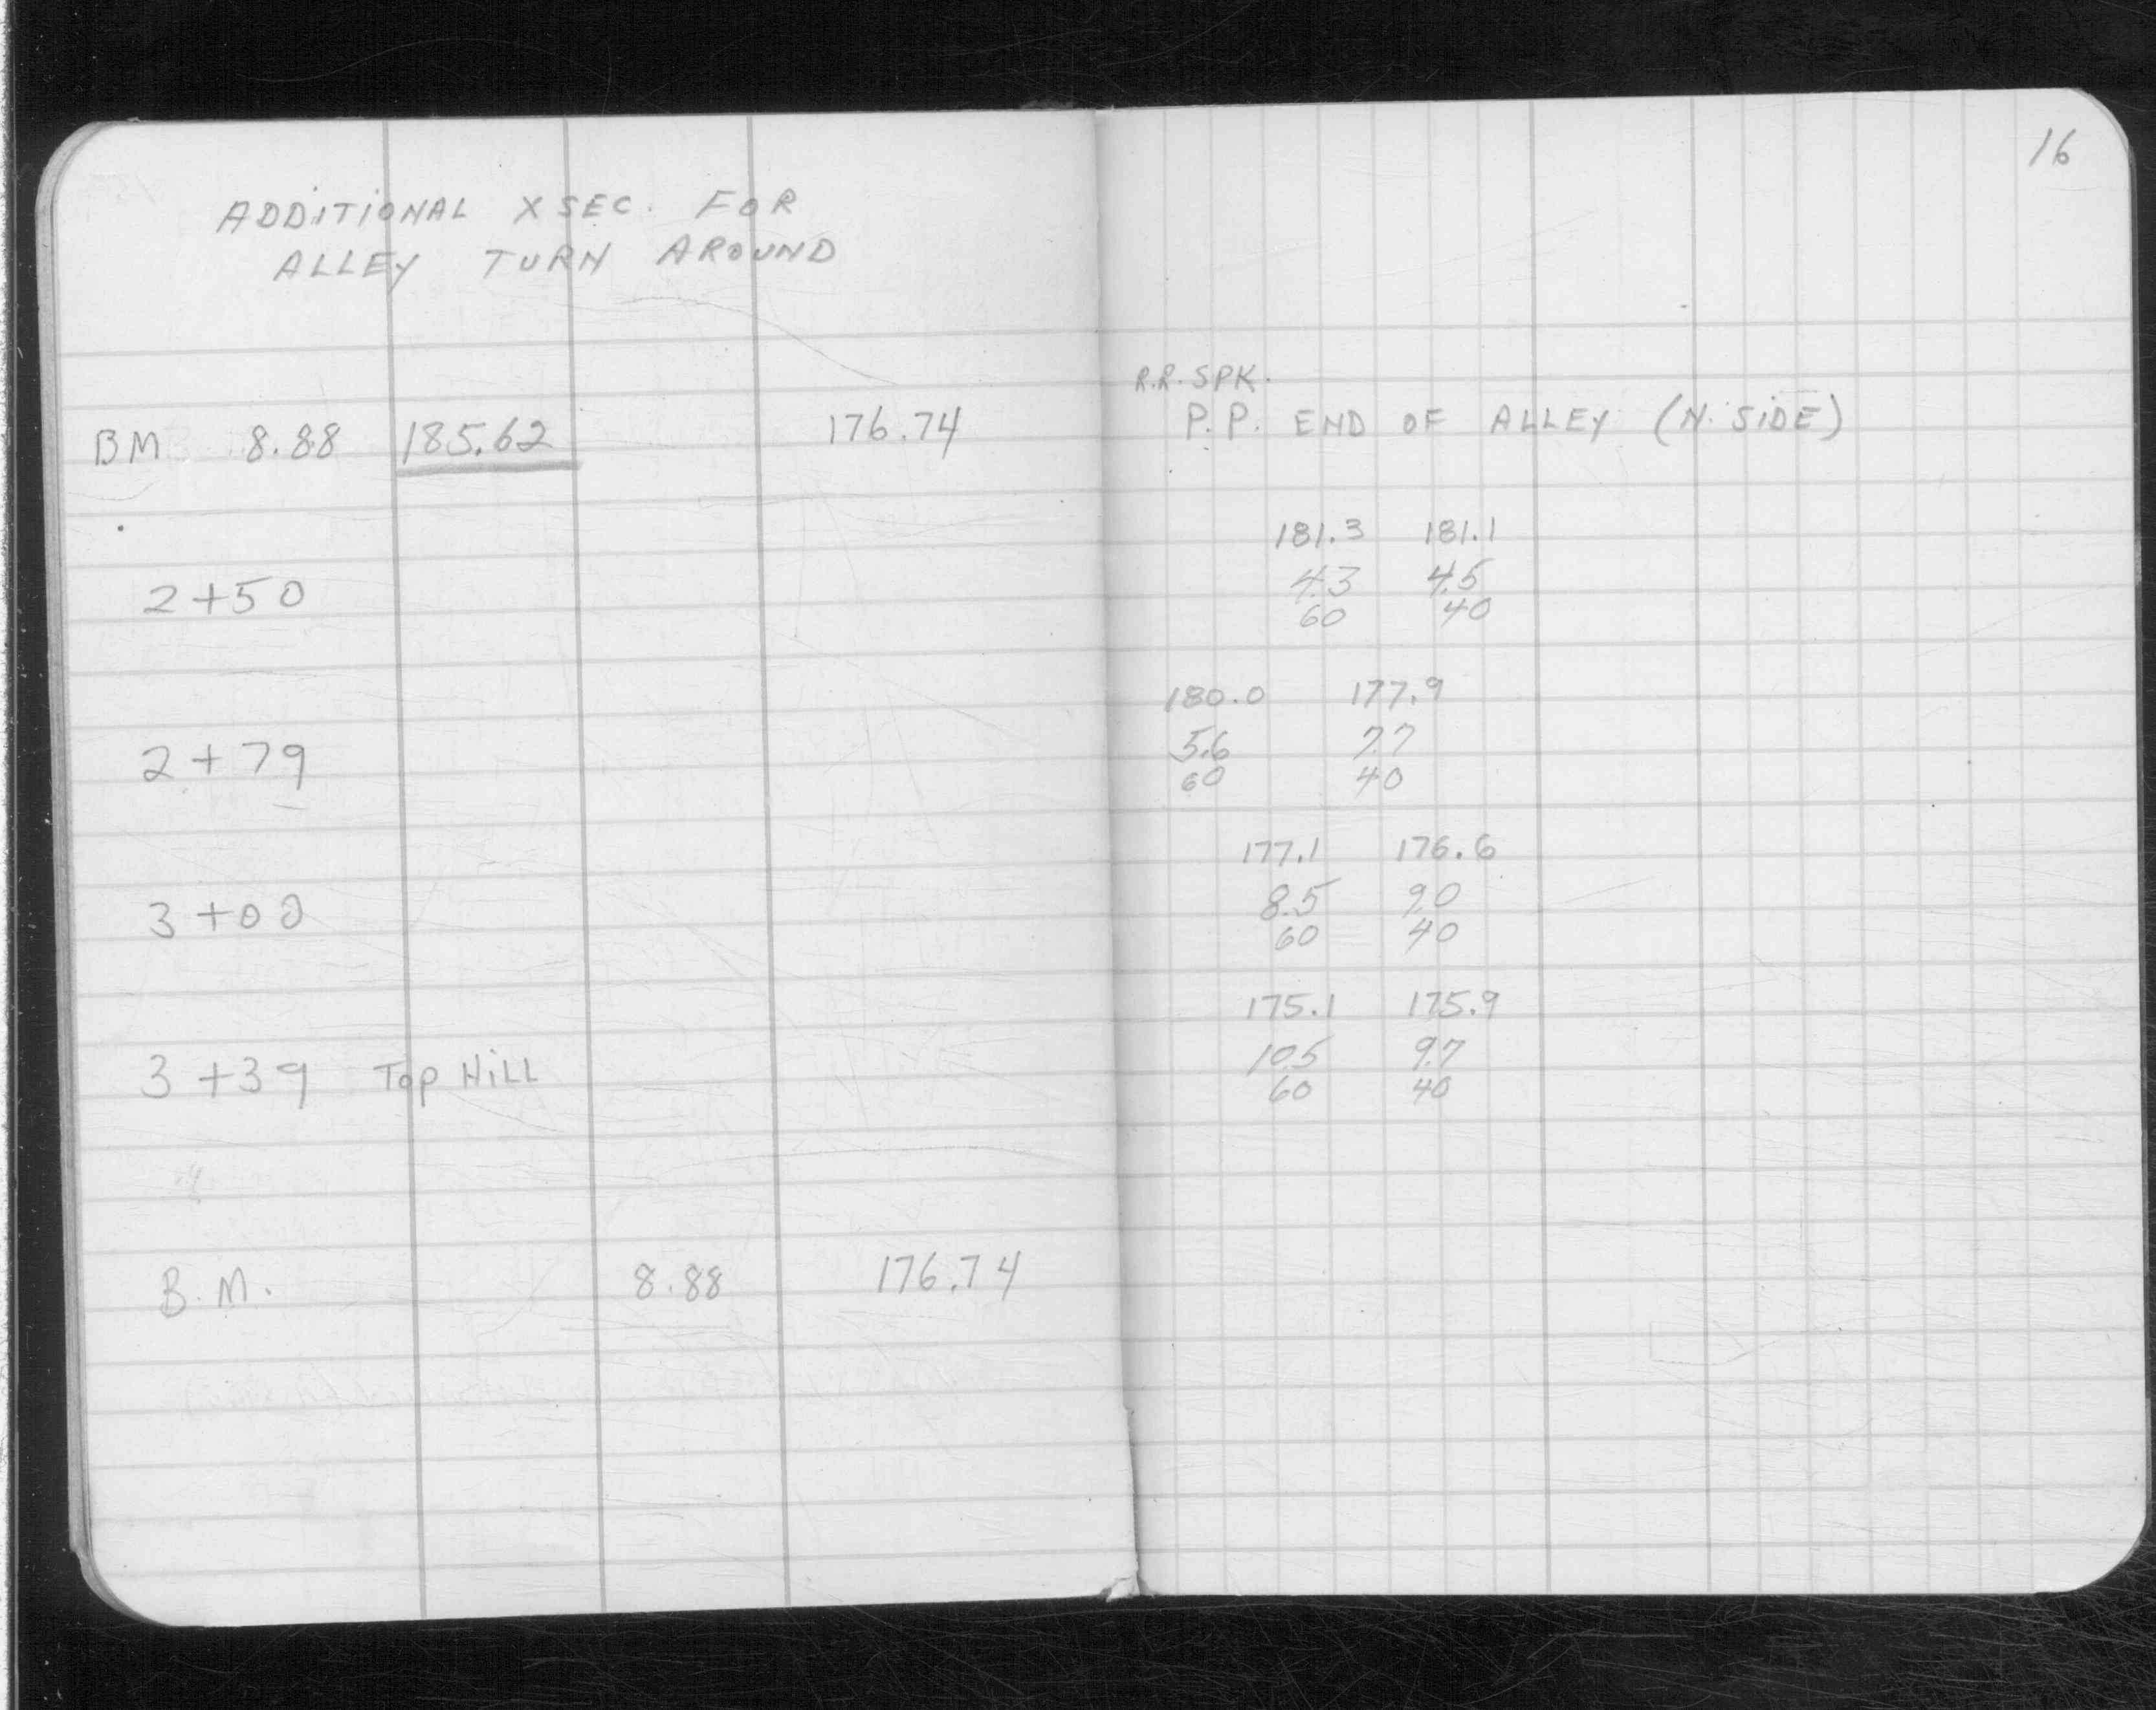 16
ADDITIONAL XSEC. FOR
ALLEY TURN AROUND
R.R. SPK.
BM 8.88 185.62 176.74 P.P. END OF ALLEY (N. SIDE)
181.3 181.1
2+50 4.3 4.5
60 40
180.0 177.9
2+79 5.6 7.7
60 40
177.1 176.6
3+00 8.5 9.0
60 40
175.1 175.9
3+39 Top HILL 10.5 9.7
60 40
B.M. 8.88 176.74